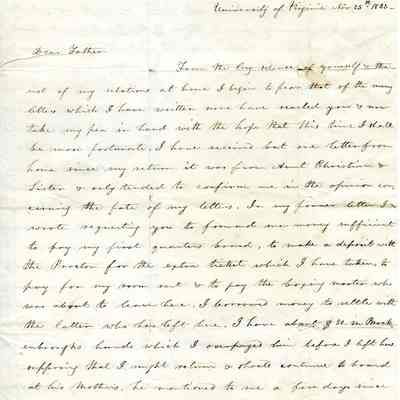 University of Virginia Nov 25th
Dear Father
From the long silence of yourself & the
rest of my relations at home I begin to fear that of the many
letters which I have written none have reached you & now
take my pen in hand with the hope that this time I shall
be more fortunate. I have received but one letter from
home since my return it was from Aunt Christina &
Sister & only tended to confirm me in the opinion con
cerning the fate of my letters. In my former letter I
wrote requesting you to forward me money sufficient
to pay my first quarters board, to make a deposit with
the Proctor for the extra ticket which I have taken, to
pay for my room rent & to pay the boxing master who
was about to leave here. I borrowed money to settle with
the latter who has left here. I have about $ in
hands which I overpaid him before I left here
supposing that I might return & should continue to board
at his Mothers. he mentioned to me a few days since